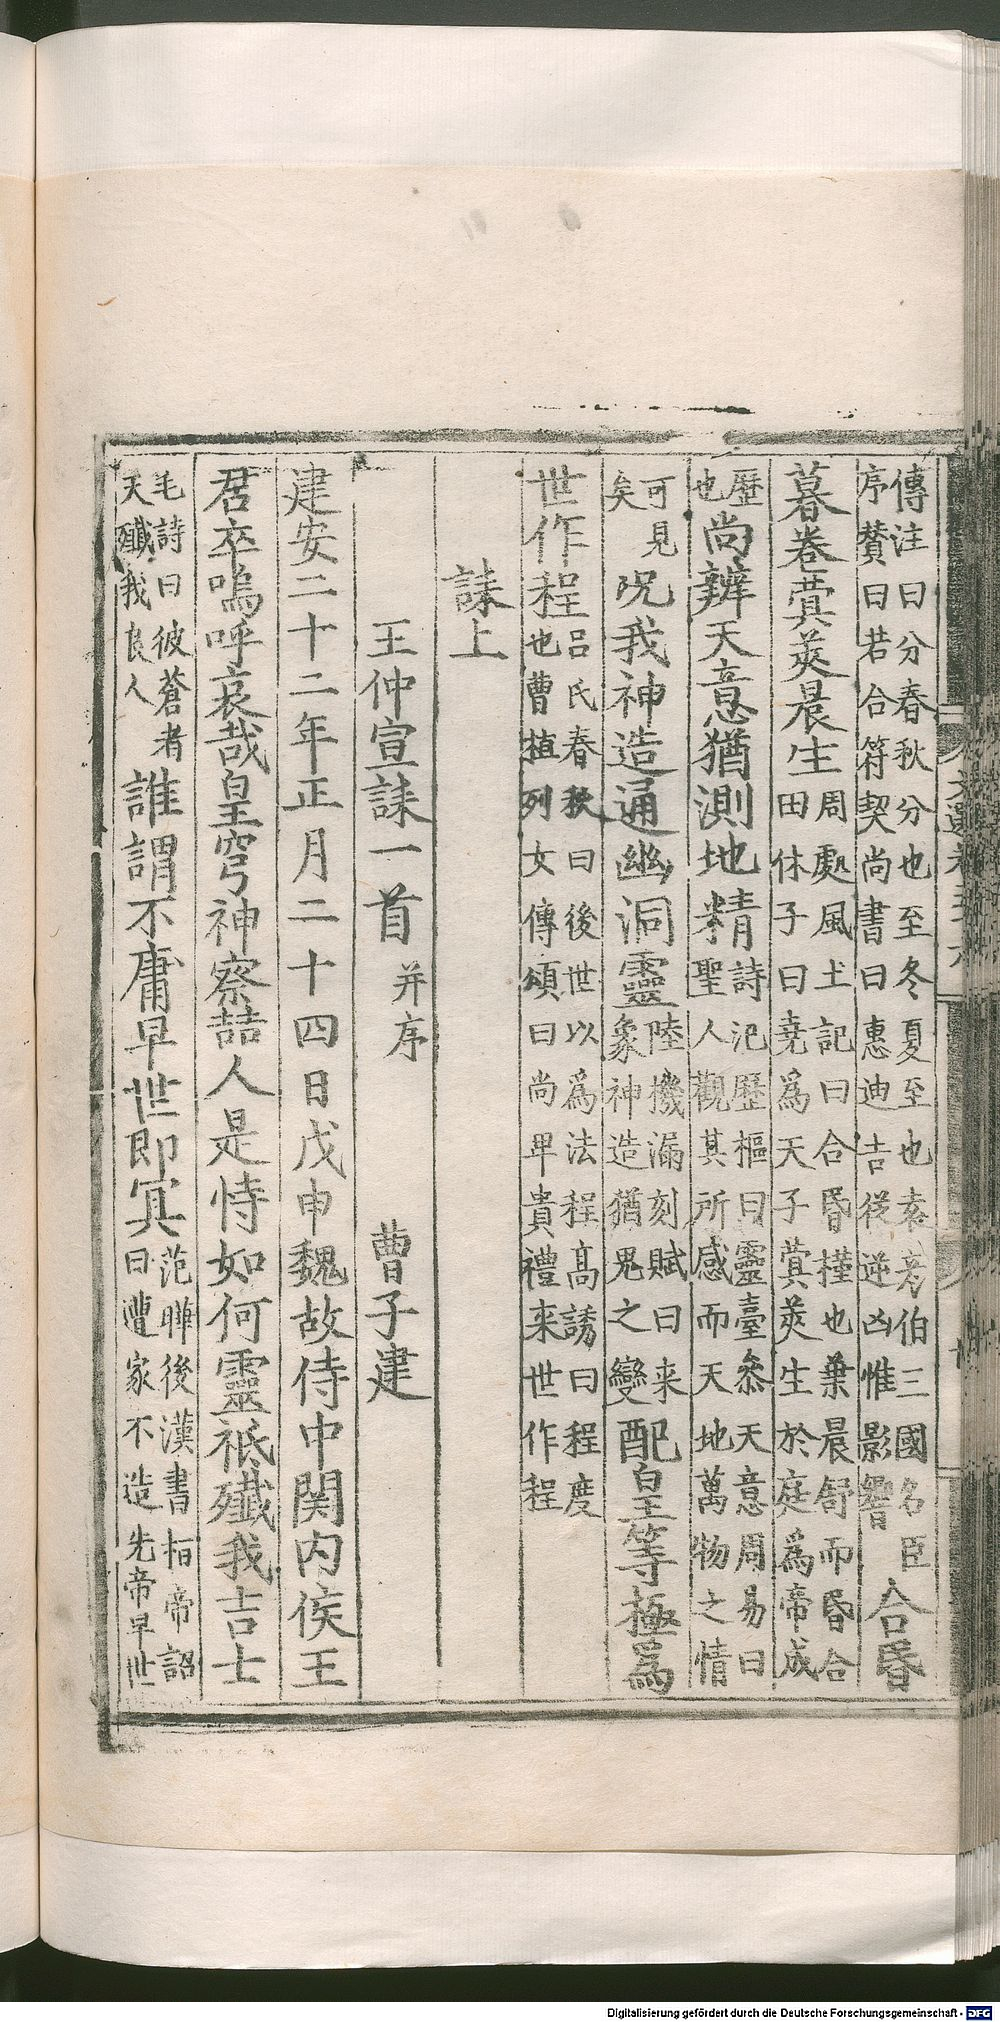 傳注曰分春秋分也至冬夏至也袁彦伯三國名臣
序贊曰若合符契尚書曰惠迪吉從逆凶惟影響
合昏
暮卷蓂莢晨生
周處風土記曰合昏槿也葉晨舒而昏合
田休子曰堯為天子蓂莢生於庭為帝成
歷
也
尚辨天意猶測地精
詩汜歷樞曰靈臺叅天意周易曰
聖人觀其所感而天地萬物之情
可見
矣
况我神造通幽洞靈
陸機漏刻賦曰来
象神造猶鬼之變
配皇等極為
世作程
吕氏春秋曰後世以為法程髙誘曰程度
也曹植列女傳頌曰尚卑貴禮来世作程
誄上
王仲宣誄一首
并序
曹子建
建安二十二年正月二十四日戊申魏故侍中関内侯王
君卒嗚呼哀哉皇穹神察喆人是恃如何靈祇殱我吉士
毛詩曰彼蒼者
天殱我良人
誰謂不庸早世即冥
范曄後漢書桓帝詔
曰遭家不造先帝早世
Digitalisierung gefördert durch die Deutsche Forschungsgemeinschaft - DFG